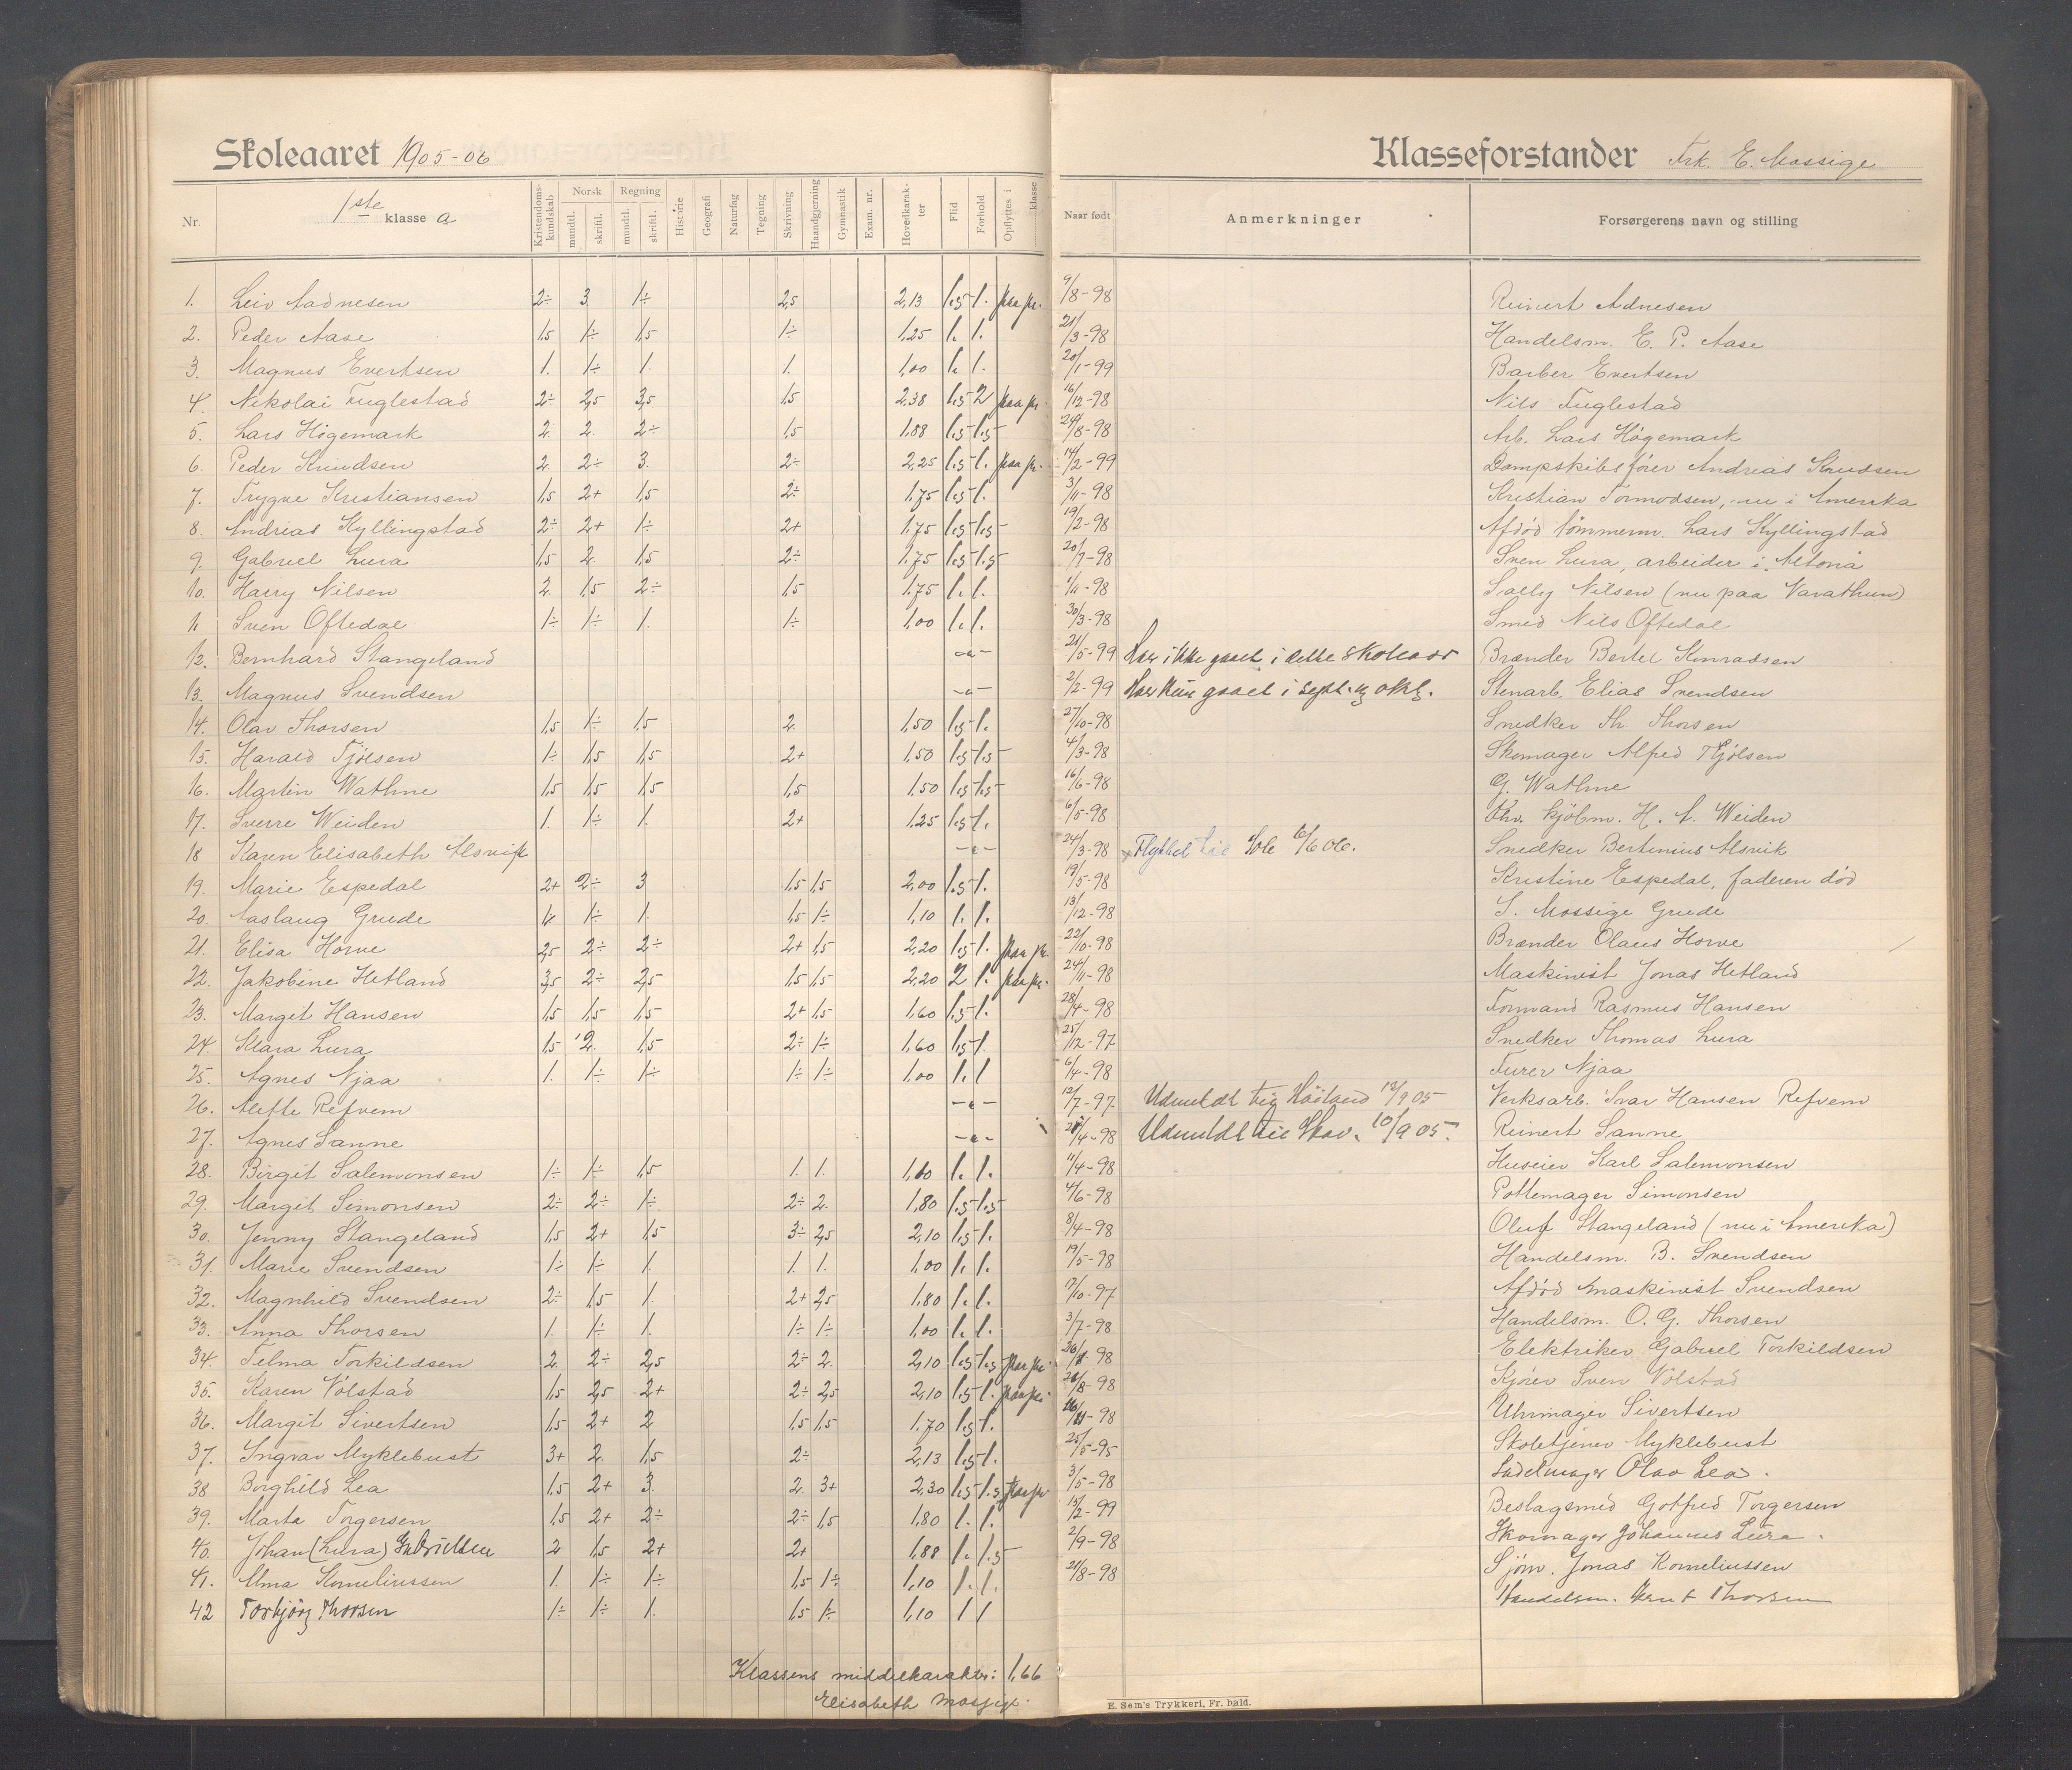 Skoleaaret 1905-06
Klasseforstander Frk. E. Mossige
Nr. 1ste klasse a Kristendomskundskab Norsk mundtl. skriftl. Regning mundtl. skriftl. Historie Geografi Naturfag Tegning Skrivning Haandgjerning Gymnastik Exam. nr. Hovedkarakter Flid Forhold Opflyttes i klasse Naar født Anmerkninger Forsørgerens navn og stilling
1. Leiv Aadnesen 2÷ 3 1÷ 2,5 2,13 1.5 1. paa pr. 9/8-98 Reinert Adnesen
2. Peder Aase 1,5 1÷ 1,5 1÷ 1,25 1. 1. 21/3-98 Handelsm. E. P. Aase
3. Magnus Evertsen 1. 1÷ 1. 1. 1,00 1. 1. 20/1-99 Barber Evertsen
4. Nikolai Fuglestad 2÷ 2,5 3,5 1,5 2,38 1.5 2 paa pr. 16/12-98 Nils Fuglestad
5. Lars Høgemark 2. 2. 2÷ 1,5 1,88 1.5 1.5 24/8-98 Arb. Lars Høgemark
6. Peder Knudsen 2. 2÷ 3. 2÷ 2,25 1.5 1. paa pr. 14/2-99 Dampskibsfører Andreas Knudsen
7. Trygve Kristiansen 1,5 2+ 1,5 2÷ 1,75 1.5 1. 3/11-98 Kristian Tormodsen, nu i Amerika
8. Andreas Kyllingstad 2÷ 2+ 1÷ 2+ 1,75 1.5 1.5 19/2-98 Afdød tømmerm. Lars Kyllingstad
9. Gabriel Lura 1,5 2. 1,5 2÷ 1,75 1.5 1.5 20/7-98 Sven Lura, arbeider i Altona
10. Harry Nilsen 2. 1,5 2÷ 1,5 1,75 1. 1. 1/11-98 Sally Nilsen (nu paa Varathun)
11. Sven Oftedal 1÷ 1÷ 1. 1÷ 1,00 1. 1. 30/3-98 Smed Nils Oftedal
12. Bernhard Stangeland -"- 21/5-99 Har ikke gaaet i dette skoleaar Brænder Bertel Konradsen
13. Magnus Svendsen -"- 2/2-99 Har kun gaaet i sept. og okt. Stenarb. Elias Svendsen
14. Olav Thorsen 1,5 1÷ 1,5 2 1,50 1.5 1. 27/10-98 Snedker Th. Thorsen
15. Harald Tjølsen 1÷ 1,5 1,5 2+ 1,50 1.5 1.5 4/3-98 Skomager Alfred Tjølsen
16. Martin Wathne 1,5 1,5 1,5 1,5 1,50 1.5 1.5 16/6-98 G. Wathne
17. Sverre Weiden 1. 1÷ 1. 2+ 1,25 1.5 1. 6/5-98 Fhv. kjøbm. H. A. Weiden
18 Karen Elisabeth Alsvik -"- 24/3-98 Flyttet til Sole 6/6 06. Snedker Bertinius Alsvik
19. Marie Espedal 2+ 2÷ 3 1,5 1,5 2,00 1.5 1. 19/5-98 Kristine Espedal, faderen død
20. Aaslaug Grude 1÷ 1÷ 1. 1,5 1÷ 1,10 1. 1. 13/12-98 S. Mossige Grude
21. Elisa Horve 2,5 2÷ 2÷ 2+ 1,5 2,20 1.5 1. paa pr. 22/10-98 Brænder Olaus Horve
22. Jakobine Hetland 3,5 2÷ 2,5 1,5 1,5 2,20 2 1. paa pr. 24/11-98 Maskinist Jonas Hetland
23. Margit Hansen 1,5 1,5 1,5 2+ 1,5 1,60 1.5 1. 28/4-98 Formand Rasmus Hansen
24. Klara Lura 1,5 2. 1,5 2÷ 1÷ 1,60 1.5 1. 25/12-97 Snedker Thomas Lura
25. Agnes Njaa 1. 1÷ 1÷ 1÷ 1÷ 1,00 1. 1 6/4-98 Furer Njaa
26. Alette Refvem -"- 12/7-97 Udmeldt 13/9 05 Verksarb. Ivar Hansen Refvem
27. Agnes Sanne -"- 28/4-98 Udmeldt til Skav. 10/9 05. Reinert Sanne
28. Birgit Salemonsen 1÷ 1÷ 1,5 1. 1. 1,10 1. 1. 11/4-98 Huseier Karl Salemonsen
29. Margit Simonsen 2÷ 2÷ 1÷ 2÷ 2. 1,80 1.5 1.5 4/6-98 Pottemager Simonsen
30. Jenny Stangeland 1,5 2+ 1,5 3÷ 2,5 2,10 1.5 1. 8/4-98 Oluf Stangeland (nu i Amerika)
31. Marie Svendsen 1÷ 1÷ 1. 1. 1. 1,00 1. 1. 19/5-98 Handelsm. B. Svendsen
32. Magnhild Svendsen 2÷ 1,5 1. 2+ 2,5 1,80 1. 1. 17/10-97 Afdød maskinist Svendsen
33. Anna Thorsen 1. 1÷ 1. 1÷ 1÷ 1,00 1. 1. 3/7-98 Handelsm. O. G. Thorsen
34. Telma Torkildsen 2. 2÷ 2,5 2÷ 2. 2,10 1.5 1.5 paa pr. 98 Elektriker Gabriel Torkildsen
35. Karen Vølstad 1,5 2,5 2+ 2÷ 2,5 2,10 1.5 1. paa pr. 8-98 Kjører Sven Vølstad
36. Margit Sivertsen 1,5 2+ 2 1,5 1,5 1.70 1.5 1. 98 Uhrmager Sivertsen
37. Ingvar Myklebust 3+ 2. 1,5 2÷ 2,13 1.5 1. 25/5-95 Skoletjener Myklebust
38 Borghild Lea 1,5 2+ 3. 2. 3+ 2,30 1.5 1.5 paa pr 3/5-98 Sadelmager Olav Lea.
39. Marta Torgersen 1,5 2+ 2÷ 2÷ 1,5 1,80 1. 1. 15/2-99 Beslagsmed Gotfred Torgersen
40. Johan (Lura) Gabrielsen 2 1,5 2+ 2+ 1,88 1. 1.5 2/9-98 Skomager Johannes Lura.
41. Alma Korneliussen 1. 1÷ 1÷ 1,5 1÷ 1,10 1. 1. 21/8-98 Sjøm. Jonas Korneliussen
42 Torbjörg Thorsen 1÷ 1÷ 1. 1,5 1÷ 1,10 1 1 Handelsm. Thorsen
Klassens middelkarakter: 1,66
Elisabeth Mossige.
E. Sem's Trykkeri, Fr.hald.